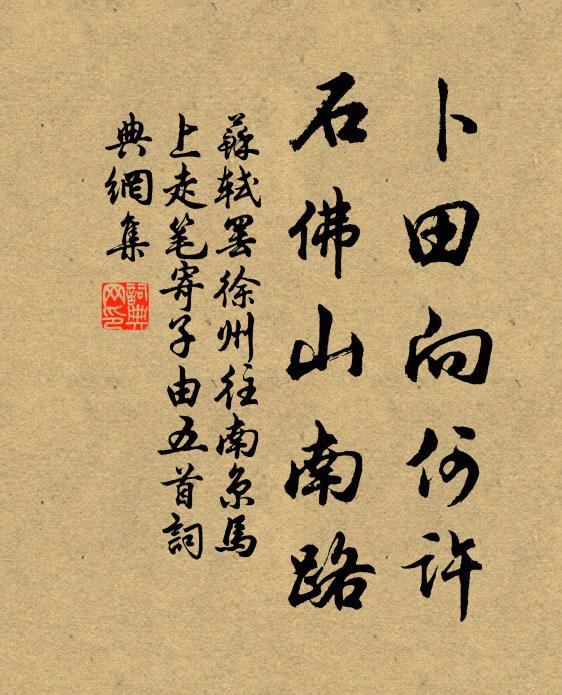 卜田向何許
石佛山南路
蘇軾罢徐州往南京馬
上走笔寄子由五首詞
典網集
詞典网印